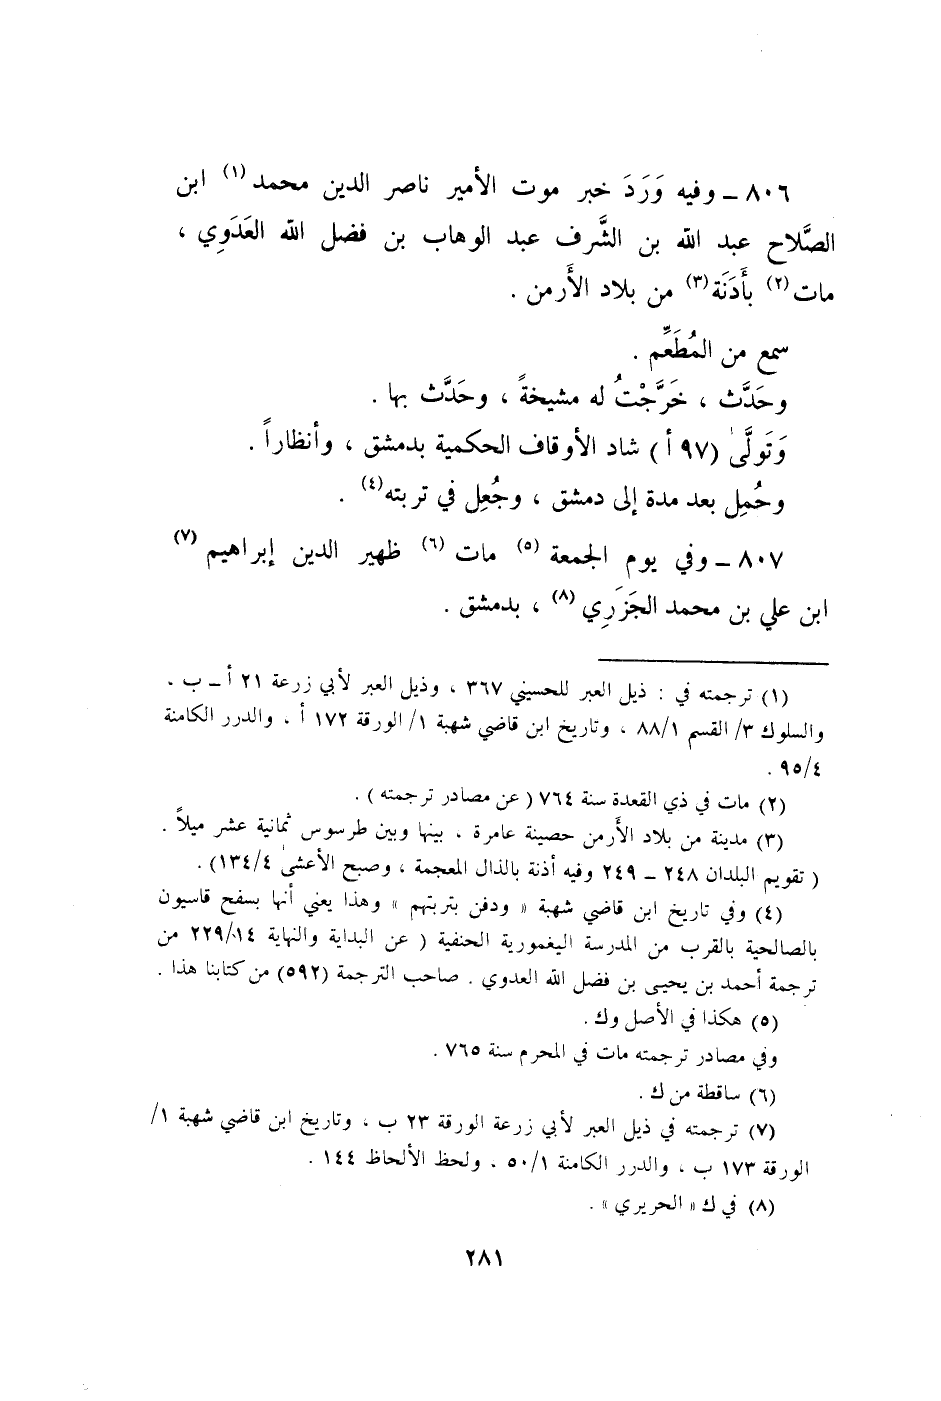 ٨٠٦ ــ وفيه وَرَدَ خبر موت الأمير ناصر الدين محمد (١) ابن
الصَّلاح عبد الله بن الشَّرف عبد الوهاب بن فضل الله العَدَوِي ،
مات (٢) بأَدَنَة (٣) من بلاد الأَرمن .
سمع من المُطَعِّم .
وحَدَّث ، خَرَّجْتُ له مشيخةً ، وحَدَّث بها .
وَتَولَّىٰ (٩٧ أ) شاد الأوقاف الحكمية بدمشق ، وأنظاراً .
وحُمِل بعد مدة إلى دمشق ، وجُعِل في تربته (٤) .
٨٠٧ ــ وفي يوم الجمعة (٥) مات (٦) ظهير الدين إبراهيم (٧)
ابن علي بن محمد الجَزَرِي (٨) ، بدمشق .
(١) ترجمته في : ذيل العبر للحسيني ٣٦٧ ، وذيل العبر لأبي زرعة ٢١ أ ــ ب ،
والسلوك ٣/ القسم ٨٨/١ ، وتاريخ ابن قاضي شهبة ١/ الورقة ١٧٢ أ ، والدرر الكامنة
٩٥/٤ .
(٢) مات في ذي القعدة سنة ٧٦٤ ( عن مصادر ترجمته ) .
(٣) مدينة من بلاد الأَرمن حصينة عامرة ، بينها وبين طرسوس ثمانية عشر ميلاً .
( تقويم البلدان ٢٤٨ ــ ٢٤٩ وفيه أذنة بالذال المعجمة ، وصبح الأعشىٰ ١٣٤/٤) .
(٤) وفي تاريخ ابن قاضي شهبة « ودفن بتربتهم » وهذا يعني أنها بسفح قاسيون
بالصالحية بالقرب من المدرسة اليغمورية الحنفية ( عن البداية والنهاية ٢٢٩/١٤ من
ترجمة أحمد بن يحيى بن فضل الله العدوي . صاحب الترجمة (٥٩٢) من كتابنا هذا .
(٥) هكذا في الأصل وك .
وفي مصادر ترجمته مات في المحرم سنة ٧٦٥ .
(٦) ساقطة من ك .
(٧) ترجمته في ذيل العبر لأبي زرعة الورقة ٢٣ ب ، وتاريخ ابن قاضي شهبة ١/
الورقة ١٧٣ ب ، والدرر الكامنة ٥٠/١ ، ولحظ الألحاظ ١٤٤ .
(٨) في ك « الحريري » .
٢٨١